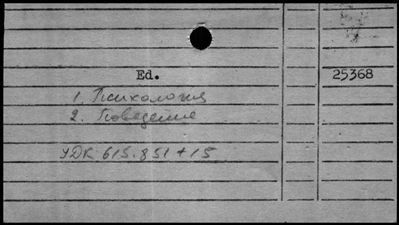 Ed.
25368
1. Психология
2. Поведение
УДК 615.851+15